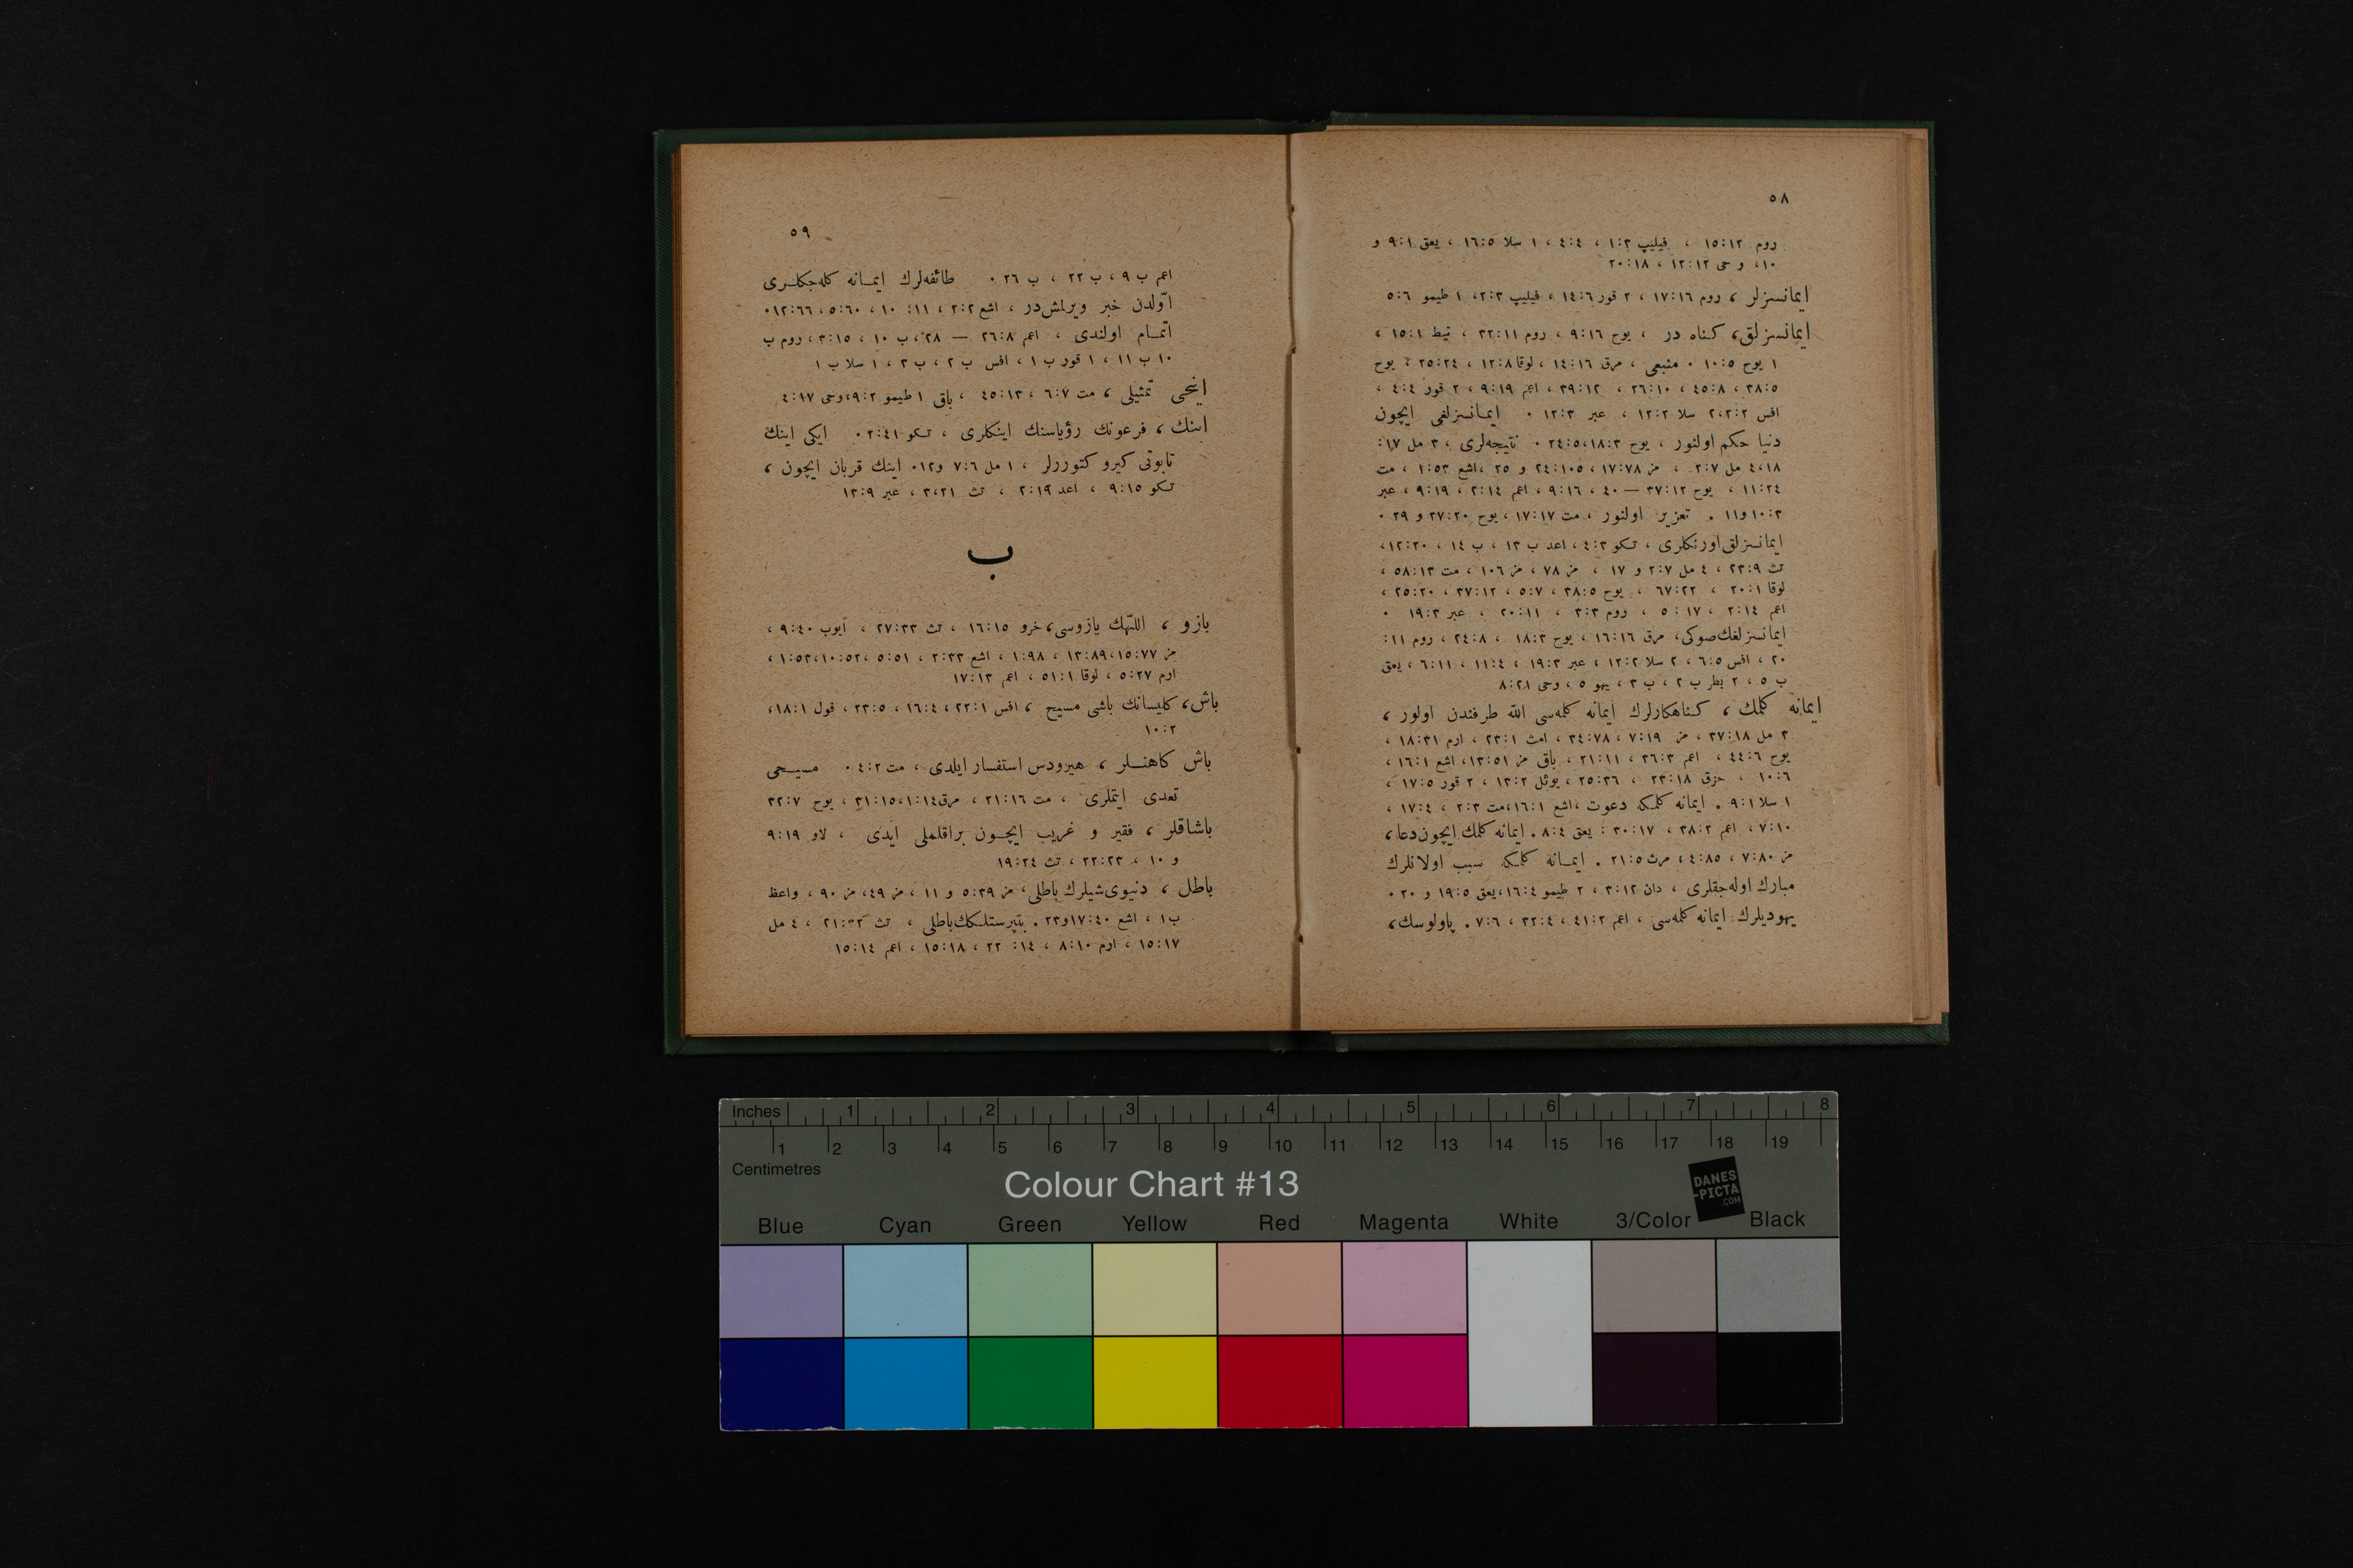 ٥٨
روم ١٥:١٢ ، فیلیپ ١:٣ ، ٤:٤ ، ١ سلا ١٦:٥ ، یعق ٩:١ و
١٠، وحی ١٢:١٢ ، ٢٠:١٨
ایمانسزلر ، روم ١٧:١٦ ، ٢ قور ١٤:٦ ، فیلیپ ٢:٣، ١ طیمو ٥:٦
ایمانسزلق، کناه در ، یوح ٩:١٦ ، روم ٣٢:١١ ، تیط ١٥:١ ،
١ یوح ١٠:٥ ٠ منبعی ، مرق ١٤:١٦ ، لوقا ١٢:٨ ، ٢٥:٢٤ ، یوح
٣٨:٥ ، ٤٥:٨ ، ٢٦:١٠ ، ٣٩:١٢ ، اعم ٩:١٩ ، ٢ قور ٤:٤ ،
افس ٢:٢،٢ سلا ١٢:٢ ، عبر ١٢:٣ ٠ ایمانسزلغی ایچون
دنیا حکم اولنور ، یوح ١٨:٣،٢٤:٥ ٠ نتیجه‌لری ، ٣ مل ١٧:
٤،١٨ مل ٢:٧ ، مز ١٧:٧٨ ، ٢٤:١٠٥ و ٢٥ ،اشع ١:٥٣ ، مت
١١:٢٤ ، یوح ٣٧:١٢ — ٤٠ ، ٩:١٦ ، اعم ٢:١٤ ، ٩:١٩ ، عبر
١٠:٣ و١١ ٠ تعزیر اولنور ، مت ١٧:١٧ ، یوح ٢٧:٢٠ و ٢٩ ٠
ایمانسزلق‌اورنکلری ، تکو ٤:٣ ، اعد ب ١٣ ، ب ١٤ ، ١٢:٢٠،
تث ٢٣:٩ ، ٤ مل ٢:٧ و ١٧ ، مز ٧٨ ، مز ١٠٦ ، مت ٥٨:١٣ ،
لوقا ٢٠:١ ، ٦٧:٢٢ ، یوح ٣٨:٥ ، ٥:٧ ، ٣٧:١٢ ، ٢٥:٢٠ ،
اعم ٢:١٤ ، ٥:١٧ ، روم ٣:٣ ، ٢٠:١١ ، عبر ١٩:٣ ٠
ایمانسزلغك‌صوکی، مرق ١٦:١٦ ، یوح ١٨:٣ ، ٢٤:٨ ، روم ١١:
٢٠ ، افس ٦:٥ ، ٢ سلا ١٢:٢ ، عبر ١٩:٣ ، ١١:٤ ، ٦:١١ ، یعق
ب ٥ ، ٢ بطر ب ٢ ، ب ٣ ، یهو ٥ ، وحی ٨:٢١
ایمانه کلمك ، کناهکارلرك ایمانه کلمه‌سی الله طرفندن اولور ،
٣ مل ٣٧:١٨ ، مز ٧:١٩ ، ٣٤:٧٨ ، امث ٢٣:١ ، ارم ١٨:٣١ ،
یوح ٤٤:٦ ، اعم ٢٦:٣ ، ٢١:١١ ، باق مز ١٣:٥١، اشع ١٦:١ ،
١٠:٦ ، حزق ٢٣:١٨ ، ٢٥:٣٦ ، یوئل ١٣:٢ ، ٢ قور ١٧:٥ ،
١ سلا ٩:١ ٠ ایمانه کلمکه دعوت ،اشع ١٦:١،مت ٢:٣ ، ١٧:٤ ،
٧:١٠ ، اعم ٣٨:٢ ، ٣٠:١٧ : یعق ٨:٤ ٠ ایمانه کلمك ایچون‌دعا،
مز ٧:٨٠ ، ٤:٨٥ ، مرث ٢١:٥ ٠ ایمانه کلمکه سبب اولانلرك
مبارك اوله‌جقلری ، دان ٣:١٢ ، ٢ طیمو ١٦:٤،یعق ١٩:٥ و ٢٠ ٠
یهودیلرك ایمانه کلمه‌سی ، اعم ٤١:٢ ، ٣٢:٤ ، ٧:٦ ٠ پاولوسك،
٥٩
اعم ب ٩ ، ب ٢٢ ، ب ٢٦ ٠ طائفه‌لرك ایمانه کله‌جکلری
اوّلدن خبر ویرلمش‌در ، اشع ٢:٢ ، ١١: ١٠ ، ٥:٦٠ ، ١٢:٦٦٠
اتمام اولندی ، اعم ٢٦:٨ — ٢٨،ب ١٠ ، ٣:١٥ ، روم ب
١٠ ب ١١ ، ١ قور ب ١ ، افس ب ٢ ، ب ٣ ، ١ سلا ب ١
اینجی تمثیلی ، مت ٦:٧ ، ٤٥:١٣ ، باق ١ طیمو ٩:٢،وحی ٤:١٧
اینك ، فرعونك رؤیاسنك اینکلری ، تکو ٢:٤١ ٠ ایکی اینك
تابوتی کیرو کتوررلر ، ١ مل ٧:٦ و١٢٠ اینك قربان ایچون ،
تکو ٩:١٥ ، اعد ٢:١٩ ، تث ٣،٢١ ، عبر ١٣:٩
ب
بازو ، اللّٰهك بازوسی، خرو ١٦:١٥ ، تث ٢٧:٣٣ ، ایوب ٩:٤٠ ،
مز ١٥:٧٧،١٣:٨٩ ، ١:٩٨ ، اشع ٢:٣٣ ، ٥:٥١ ،١٠:٥٢،١:٥٣ ،
ارم ٥:٢٧ ، لوقا ٥١:١ ، اعم ١٧:١٣
باش، کلیسانك باشی مسیح ، افس ٢٢:١ ، ١٦:٤ ، ٢٣:٥ ، قول ١٨:١،
١٠:٢
باش کاهنلر ، هیرودس استفسار ایلدی ، مت ٤:٢ ٠ مسیحی
تعدی ایتملری ، مت ٢١:١٦ ، مرق ١:١٤،٣١:١٥ ، یوح ٣٢:٧
باشاقلر ، فقیر و غریب ایچون براقلملی ایدی ، لاو ٩:١٩
و ١٠ ، ٢٢:٢٣ ، تث ١٩:٢٤
باطل ، دنیوی‌شیلرك باطلی، مز ٥:٣٩ و ١١ ، مز ٤٩، مز ٩٠ ، واعظ
ب١ ، اشع ١٧:٤٠و٢٣ ٠ بتپرستلکك‌باطلی ، تث ٢١:٣٢ ، ٤ مل
١٥:١٧ ، ارم ٨:١٠ ، ١٤: ٢٢ ، ١٥:١٨ ، اعم ١٥:١٤
Inches 1 2 3 4 5 6 7 8
1 2 3 4 5 6 7 8 9 10 11 12 13 14 15 16 17 18 19
Centimetres
Colour Chart #13
DANES
-PICTA
.COM
Blue Cyan Green Yellow Red Magenta White 3/Color Black